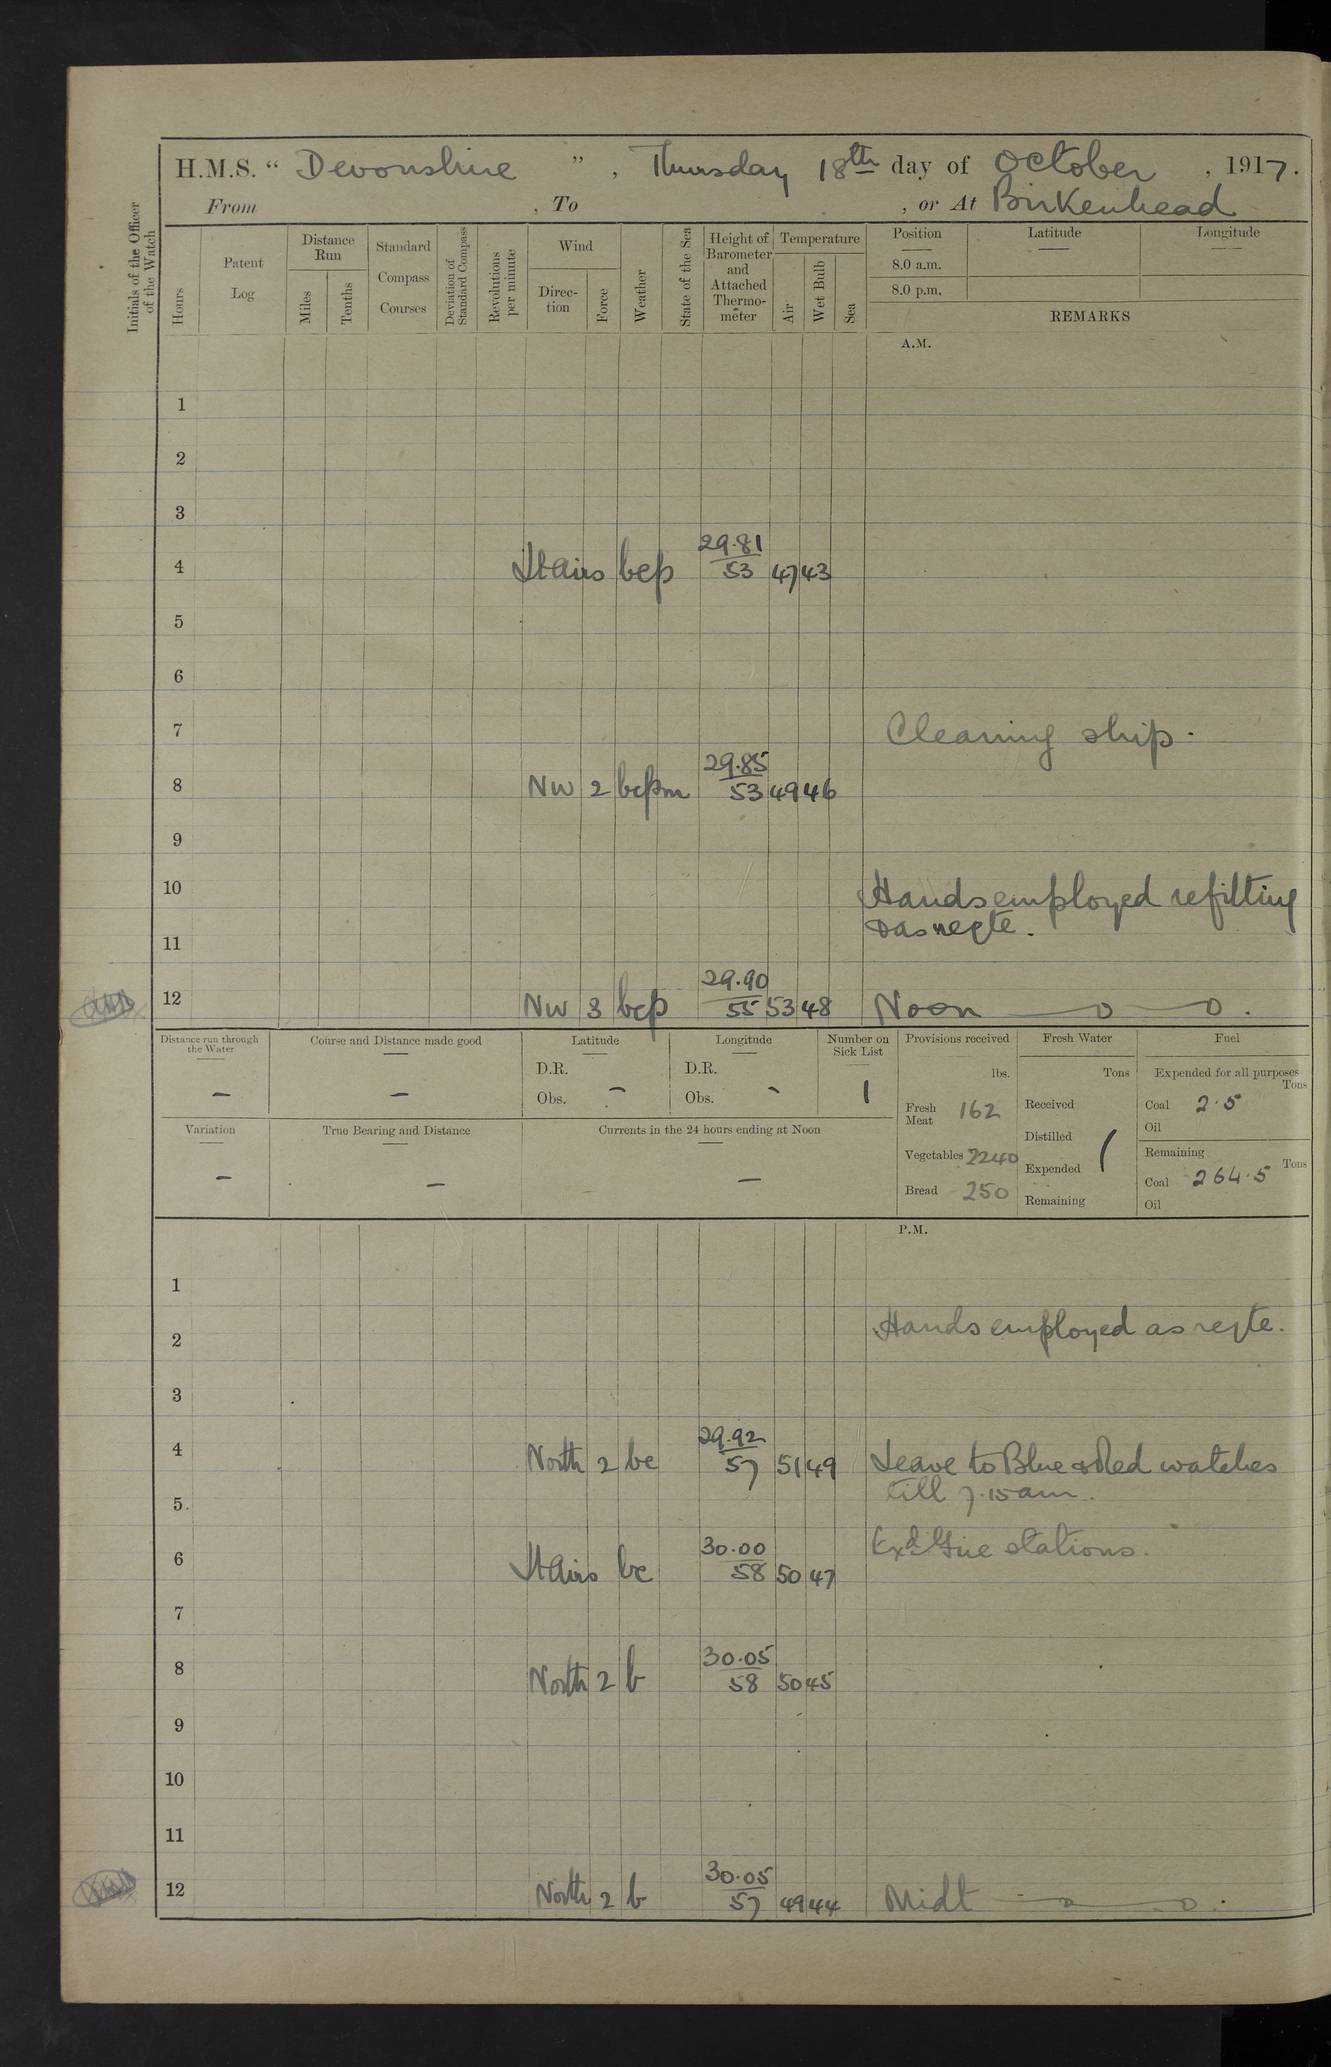 H.M.S. “ Devonshire ” , Thursday 18th day of October , 1917.
From , To , or At Birkenhead
Initials of the Officer of the Watch
Hours
Patent Log
Distance Run
Miles
Tenths
Standard Compass Courses
Deviation of Standard Compass
Revolutions per minute
Wind
Direction
Force
Weather
State of the Sea
Height of Barometer and Attached Thermometer
Temperature
Air
Wet Bulb
Sea
Position
8.0 a.m.
8.0 p.m.
Latitude
Longitude
REMARKS
A.M.
1
2
3
4 Lt Airs bcp 29.81 53 47 43
5
6
7 Cleaning ship.
8 NW 2 bcpm 29.85 53 49 46
9
10 Hands employed refitting
& as reqte.
11
12 NW 3 bcp 29.90 55 53 48 Noon —o—o.
Distance run through the Water
—
Course and Distance made good
—
Latitude
D.R.
Obs. -
Longitude
D.R.
Obs. -
Number on Sick List
1
Provisions received
lbs.
Fresh Meat 162
Vegetables 2240
Bread 250
Fresh Water
Tons
Received
Distilled
Expended
Remaining
Fuel
Expended for all purposes
Tons
Coal 2.5
Oil
Remaining
Tons
Coal 264.5
Oil
Variation
—
True Bearing and Distance
—
Currents in the 24 hours ending at Noon
—
P.M.
1
2 Hands employed as reqte.
3
4 North 2 bc 29.92 57 51 49 Leave to Blue & Red watches
till 7.15am.
5
6 Lt Airs bc 30.00 58 50 47 Exd Fire stations.
7
8 North 2 b 30.05 58 50 45
9
10
11
12 North 2 b 30.05 57 49 44 Midt —o—o.